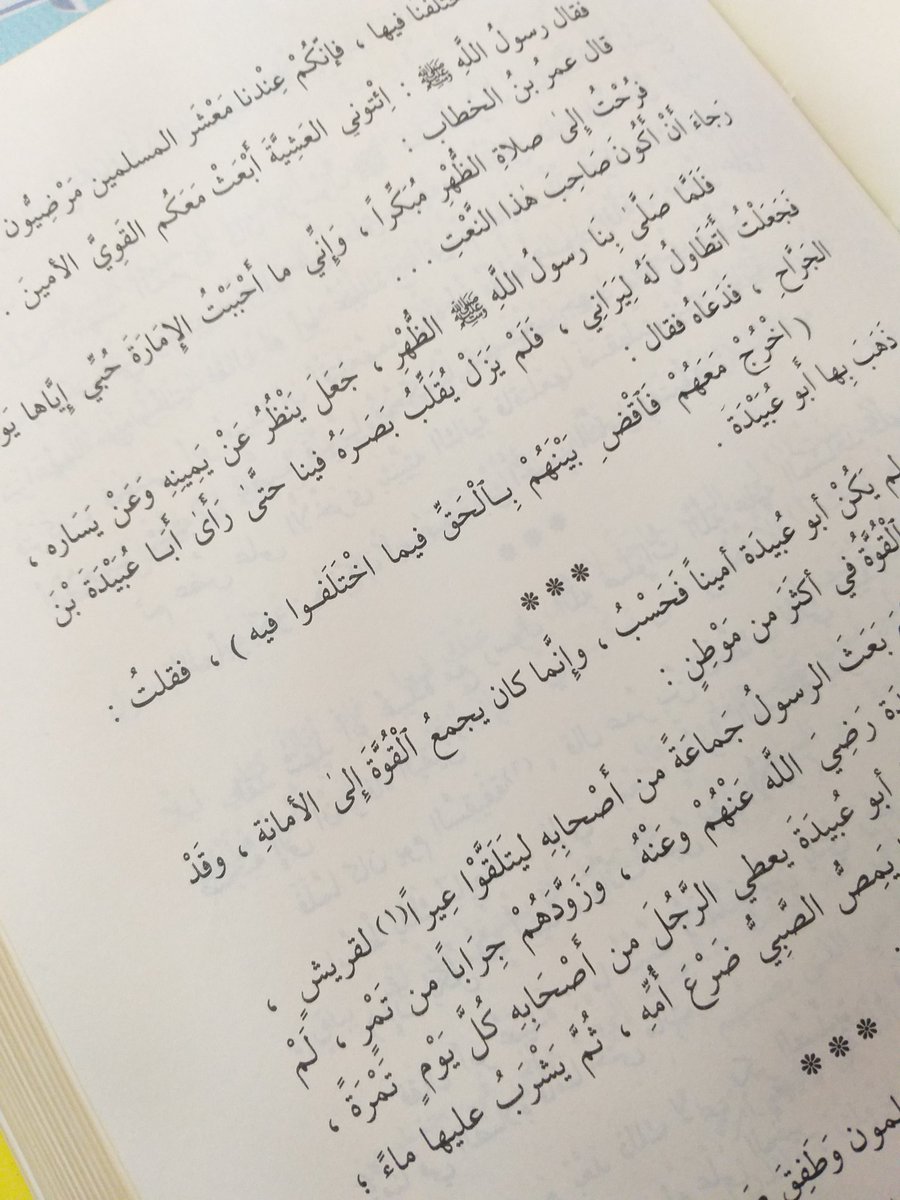 فيها ، فإنَّكُمْ عِنْدنا مَعْشَر المسلمين مَرْضِيُّون
فقال رسولُ اللَّهِ ﷺ : اِئْتوني العَشِيَّةَ أَبْعَثْ مَعَكُم القَوِيَّ الأمينَ .
قال عمرُ بنُ الخطاب :
فَرُحْتُ إِلىٰ صلاةِ الظُّهْرِ مُبَكِّراً ، وَإِنِّي ما أَحْبَبْتُ الإِمَارَةَ حُبِّي إِيَّاها
رَجاءَ أَنْ أَكُونَ صَاحِبَ هٰذا النَّعْتِ . . .
فَلَمَّا صَلَّىٰ بِنَا رسولُ اللَّهِ ﷺ الظُّهْرِ ، جَعَلَ يَنْظُرُ عَنْ يَمِينِهِ وَعَنْ يَسَاره ،
فَجَعَلْتُ أَتَطَاوَلُ لَهُ لِيَرَانِي ، فَلَمْ يَزَلْ يُقَلِّبُ بَصَرَهُ فينا حتىَّٰ رَأَىٰ أَبـا عُبَيْدَةَ بْنَ
الجَرَّاحِ ، فَدَعَاهُ فقال :
( اخْرُجْ مَعَهُمْ فَٱقْضِ بَيْنَهُمْ بِـٱلْحَقِّ فيما اخْتَلَفـوا فيه ) ، فقلتُ :
ذَهَبَ بِها أبو عُبَيْدَةَ .
***
لم يَكُنْ أبو عُبيدَة أميناً فَحَسْبُ ، وإنَّما كان يجمعُ ٱلْقُوَّةَ إِلىٰ الأمانةِ ، وقَدْ
ٱلْقُوَّةُ في أكثَرَ من مَوْطِنٍ :
بَعَثَ الرسولُ جَماعَةً من أَصْحابِهِ ليتَلَقَّوْا عِيراً(١) لقريشٍ ،
رَضِيَ اللَّه عَنْهُمْ وعَنْهُ ، وَزَوَّدَهُمْ جِرَاباً من تَمْرٍ ، لَمْ
أبو عُبيدَةَ يعطي الرَّجُلَ من أَصْحَابِهِ كُلَّ يَوْمٍ تَمْرَةً ،
يَمِصُّ الصَّبِيُّ ضَرْعَ أُمِّهِ ، ثُمَّ يَشْرَبُ عليها ماءً ؛
***
وَطَفِقَ